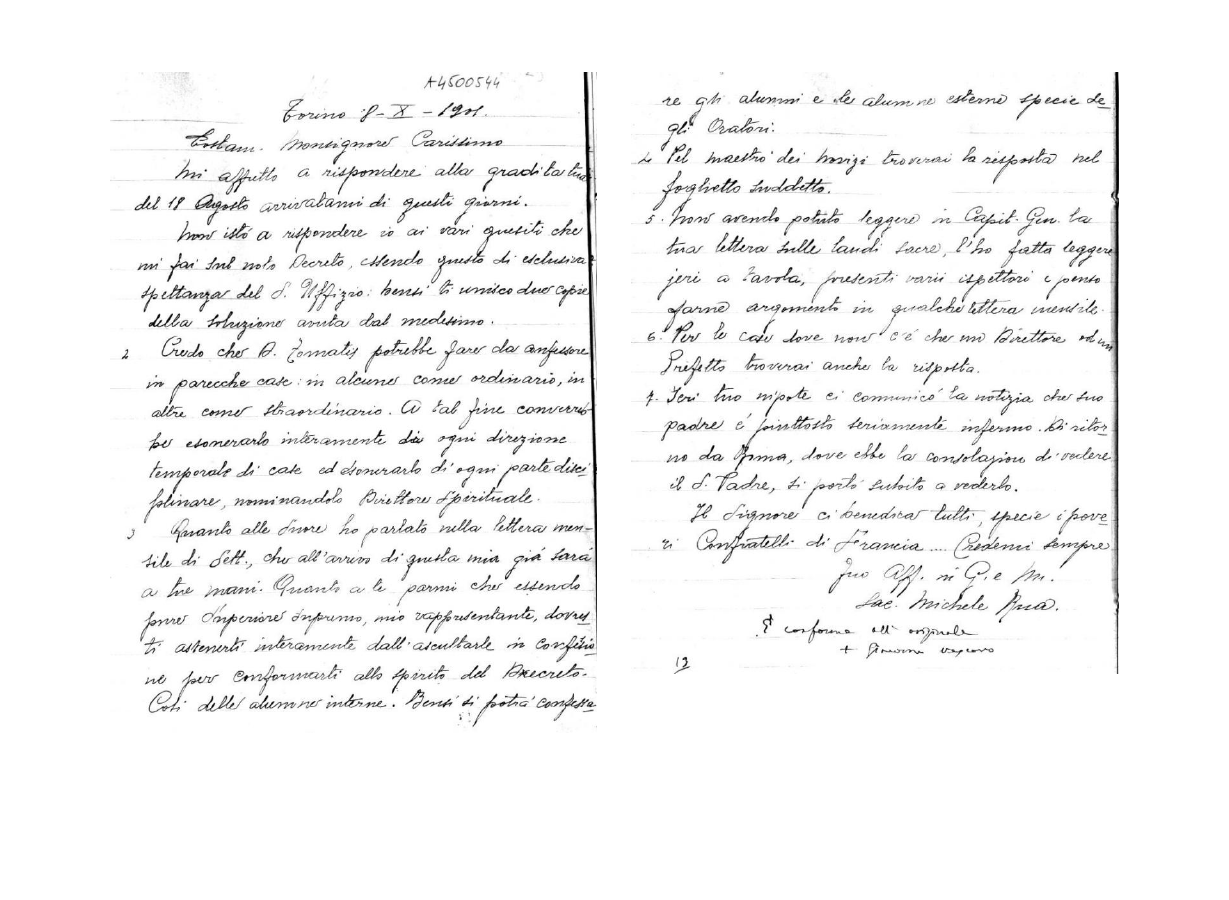 A4500544
Torino 8 - X - 1901.
Monsignore Carissimo
Mi affretto a rispondere alla gradita tua
del 18 Agosto arrivatami di questi giorni.
Non istò a rispondere io ai vari quesiti che
mi fai sul noto Decreto, essendo questo di esclusiva
spettanza del S. Uffizio: bensi ti unisco due copie
della soluzione avuta dal medesimo.
2 Credo che D. Tomatis potrebbe fare da confessore
in parecchie case: in alcune come ordinario, in
altre come straordinario. A tal fine converreb
be esonerarlo interamente da ogni direzione
temporale di case ed esonerarlo di ogni parte disci
plinare, nominandolo Direttore Spirituale.
3 Quanto alle Suore ho parlato nella lettera men-
sile di Sett., che all'arrivo di questa mia già sarà
a tue mani. Quanto a te parmi che essendo
pure Superiore Supremo, mio rappresentante, dovres
ti astenerti interamente dall'ascoltarle in confessio
ne per conformarti allo spirito del Decreto.
Così delle alunne interne. Bensi si potrà confessa
re gli alunni e le alunne esterne specie de-
gli Oratori.
4. Pel maestro dei novizi troverai la risposta nel
foghetto suddetto.
5. Non avendo potuto leggere in Capit. Gen. la
tua lettera sulle laudi sacre, l'ho fatta leggere
jeri a tavola, presenti varii ispettori e penso
farne argomento in qualche lettera mensile.
6. Per le case dove non c'è che un Direttore od un
Prefetto troverai anche la risposta.
7. Jeri tuo nipote ci comunicò la notizia che suo
padre è piuttosto seriamente infermo. Di ritor-
no da Roma, dove ebbe la consolazion di vedere
il S. Padre, si portò subito a vederlo.
Il Signore ci benedica tutti, specie i pove
ri Confratelli di Francia .... Credemi sempre
Tuo Aff. in G. e M.
Sac. Michele Rua.
È conforme all'originale
+ Giacomo vescovo
12